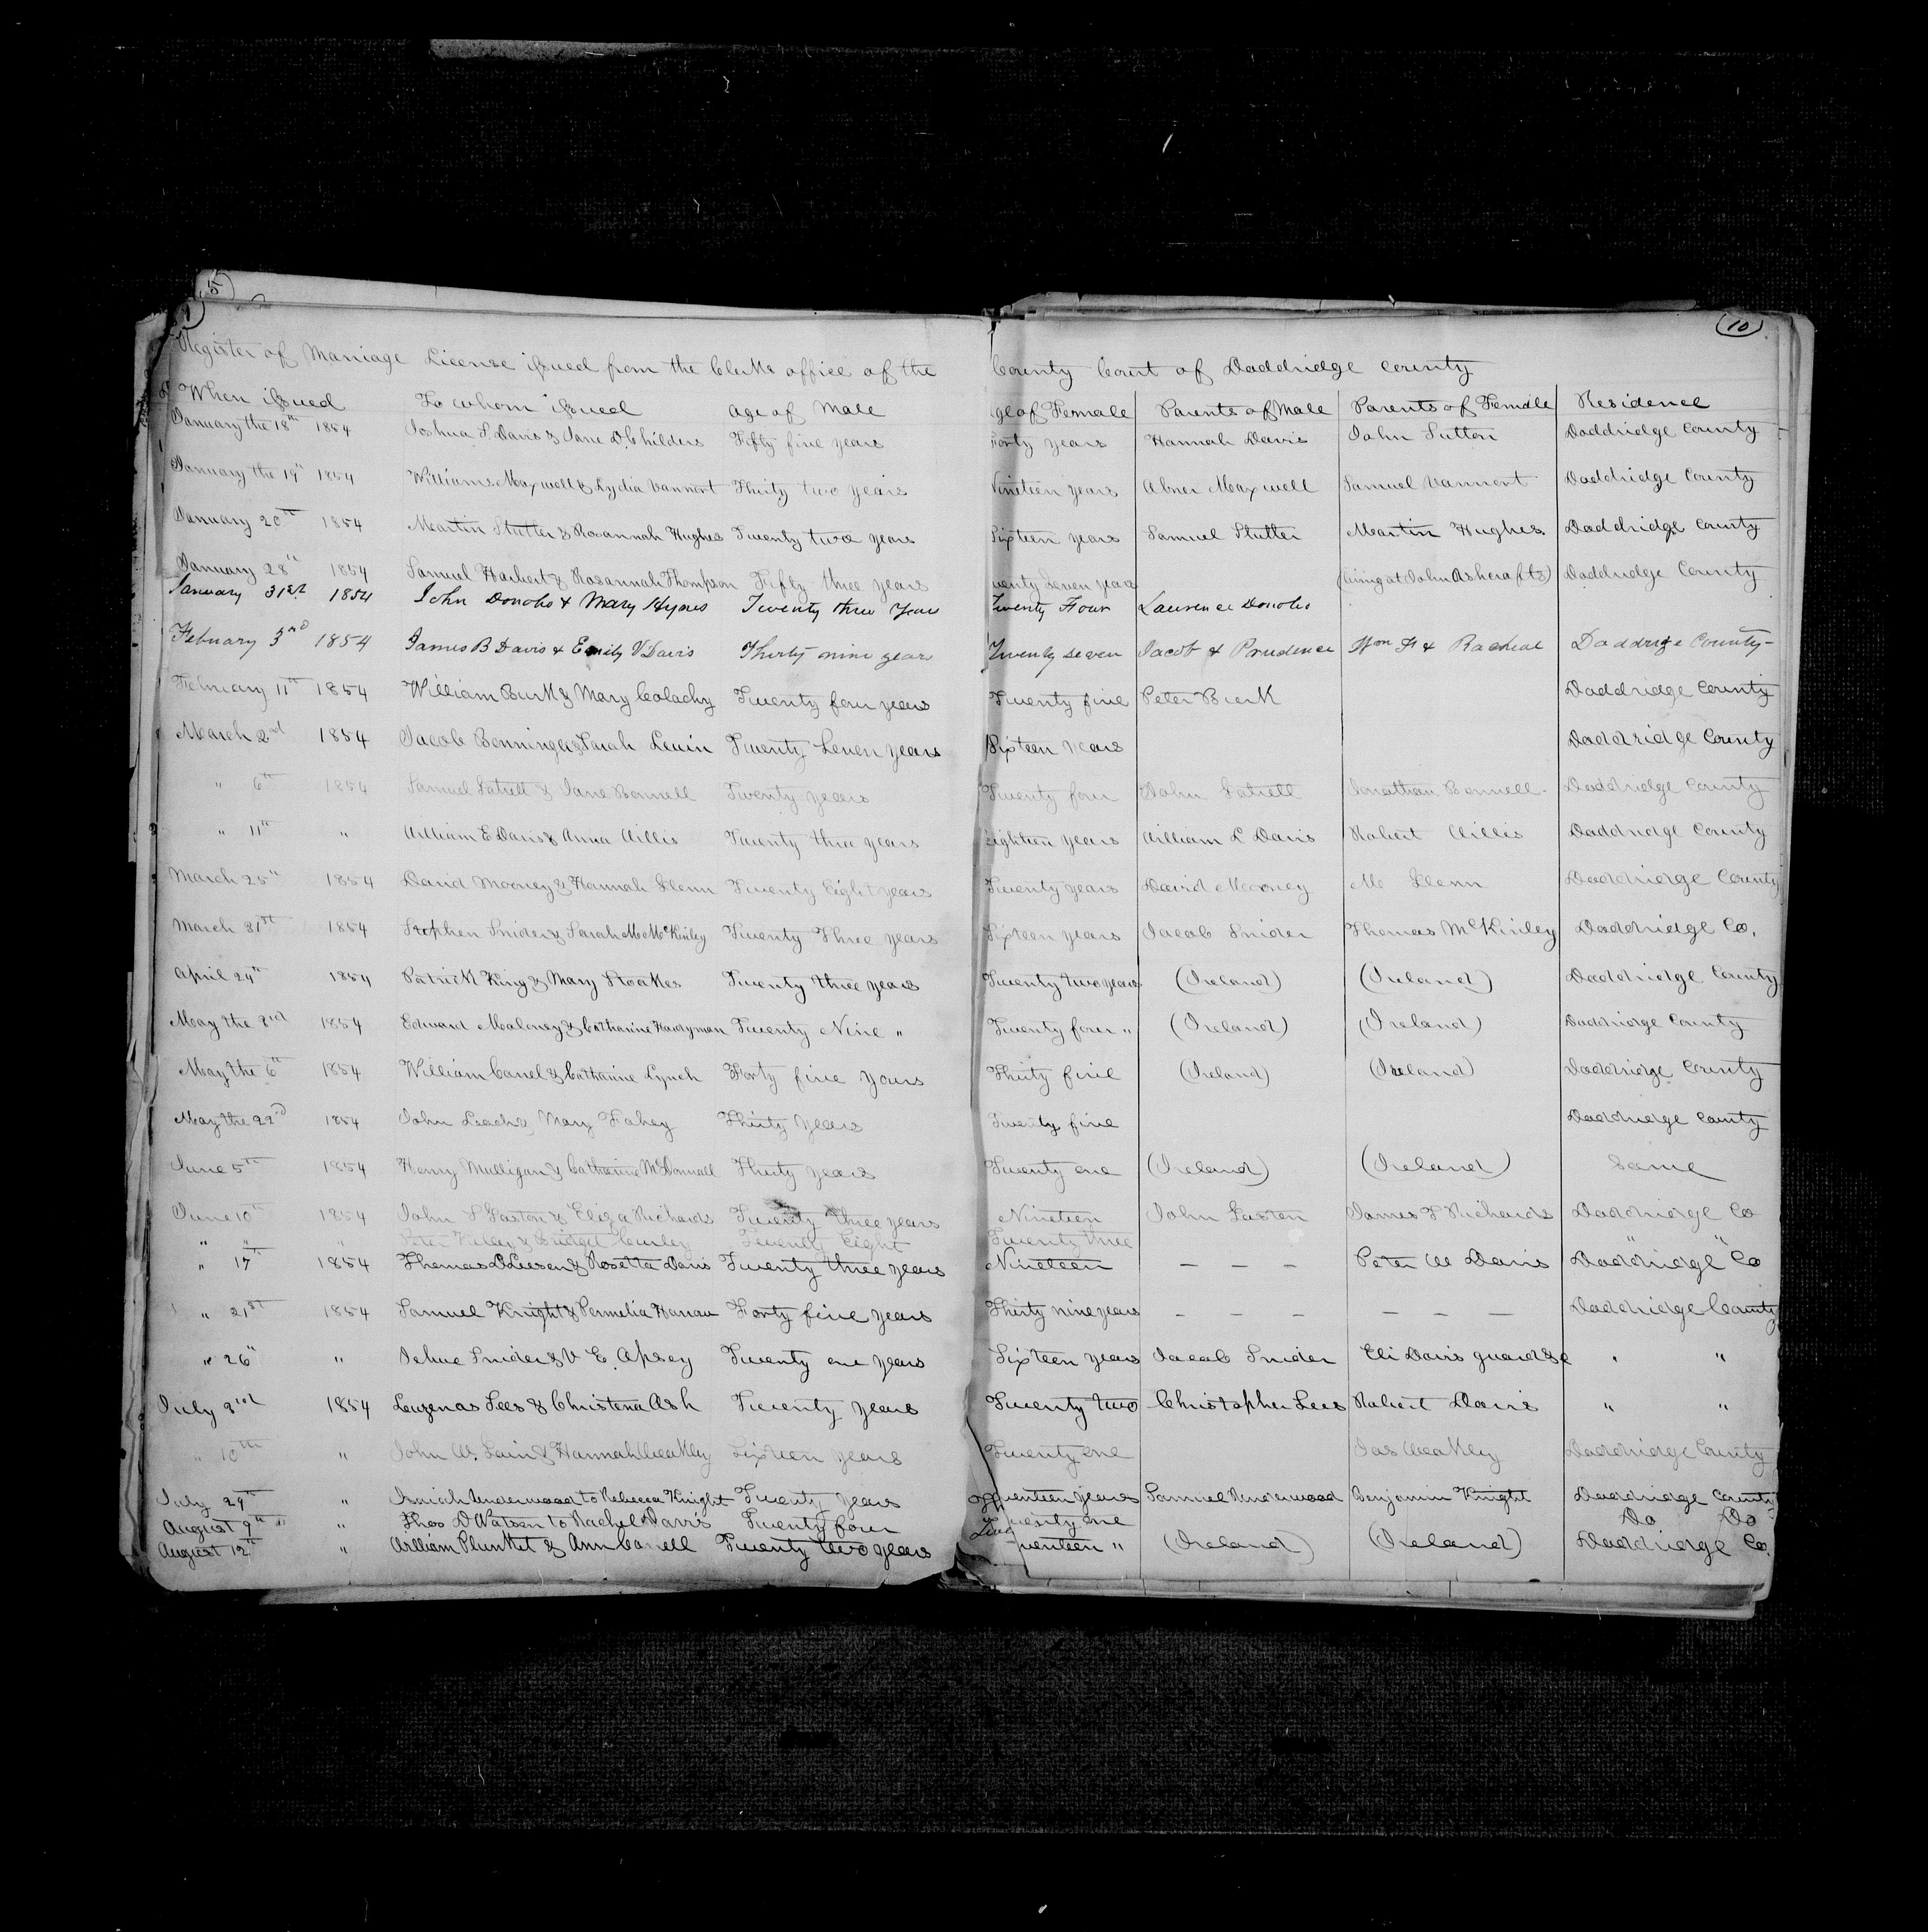 5
10
Register of Marriage License issued from the Clerks office of the County Court of Doddridge County
When issued To whom issued Age of Male Age of Female Parents of Male Parents of Female Residence
January the 18th 1854 Joshua S. Davis & Jane D. Childers Fifty five years Forty years Hannah Davis John Sutton Doddridge County
January the 19th 1854 William Maxwell & Lydia Vannort Thirty two years Nineteen years Abner Maxwell Samuel Vannort Doddridge County
January 20th 1854 Martin Stutler & Rosannah Hughes Twenty two years Sixteen years Samuel Stutler Martin Hughes Doddridge County
January 28th 1854 Samuel Harbert & Rosannah Thompson Fifty three years Twenty Seven years (living at John Ashcrafts) Doddridge County
January 31st 1854 John Donoho & Mary Hynes Twenty three Years Twenty Four Laurence Donoho
February 3rd 1854 James B Davis & Emily V Davis Thirty nine years Twenty seven Jacob & Prudence Wm F & Racheal Doddridge County
February 11th 1854 William Burk & Mary Colachy Twenty four years Twenty five Peter Burk Doddridge County
March 2nd 1854 Jacob Benninger & Sarah Levin Twenty Seven years Sixteen years Doddridge County
" 6th 1854 Samuel Gatrell & Jane Bonnell Twenty years Twenty four John Gatrell Jonathan Bonnell Doddridge County
" 11th " William E Davis & Anna Willis Twenty three years Eighteen years William L Davis Robert Willis Doddridge County
March 25th 1854 David Mooney & Hannah Glenn Twenty Eight years Twenty years David Mooney M Glenn Doddridge County
March 31st 1854 Stephen Snider & Sarah M McKinley Twenty Three years Sixteen years Jacob Snider Thomas McKinley Doddridge Co.
April 24th 1854 Patrick King & Mary Stoakes Twenty three years Twenty two years (Ireland) (Ireland) Doddridge County
May the 2nd 1854 Edward Maloney & Catharine Hardyman Twenty Nine " Twenty four " (Ireland) (Ireland) Doddridge County
May the 6th 1854 William Carrel & Catharine Lynch Forty five years Thirty five (Ireland) (Ireland) Doddridge County
May the 22d 1854 John Leach & Mary Fahey Thirty years Twenty five Doddridge County
June 5th 1854 Henry Mulligan & Catharine McDonnall Thirty years Twenty one (Ireland) (Ireland) Same
June 10th 1854 John S Gaston & Eliza Richards Twenty three years Nineteen John Gaston James F Richards Doddridge Co
" " " Peter Kiley & Bridget Curley Twenty Eight Twenty three " "
" 17th 1854 Thomas Leeson & Rosetta Davis Twenty three years Nineteen — — — Peter W Davis Doddridge Co
" 21st 1854 Samuel Knight & Permelia Hanan Forty five years Thirty nine years — — — — — — Doddridge County
" 26th " Jehue Snider & V E. Apsey Twenty one years Sixteen years Jacob Snider Eli Davis guard &c " "
July 3rd 1854 Luzenas Lees & Christena Ash Twenty years Twenty two Christopher Lees Robert Davis " "
" 10th " John W. Lain & Hannah Weakley Sixteen years Twenty one Jas Weakley Doddridge County
July 29th " Isaiah Underwood to Rebecca Knight Twenty years Seventeen years Samuel Underwood Benjamin Knight Doddridge County
August 9th " Thos D Watson to Rachel Davis Twenty four Twenty one Do Do
August 12th " William Plunket & Ann Carrell Twenty two years Seventeen " (Ireland) (Ireland) Doddridge Co.